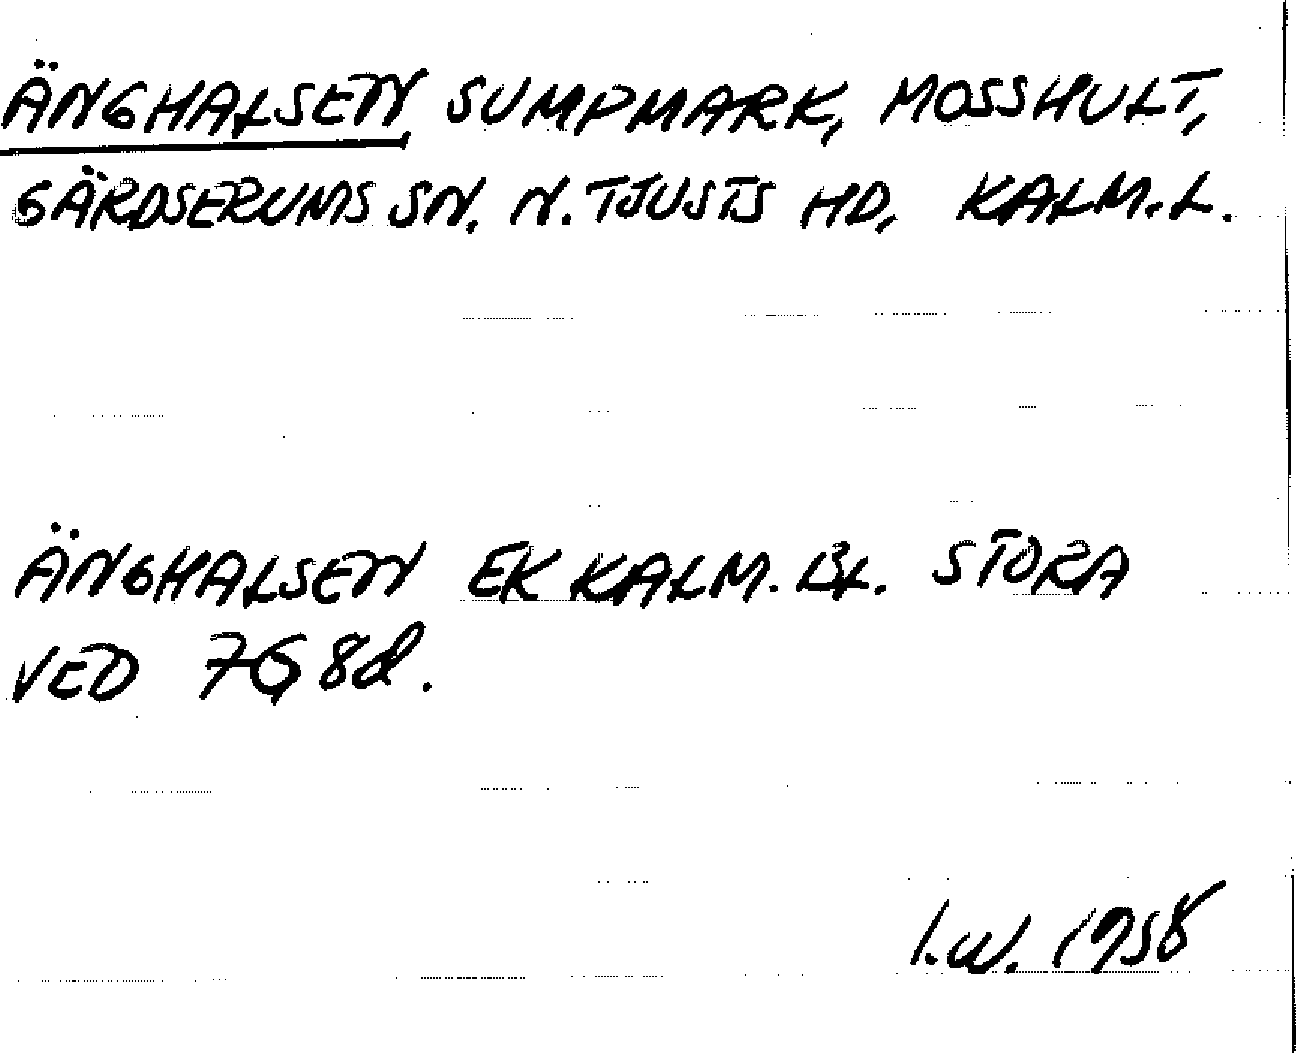 ÄNGHALSEN, SUMPMARK, MOSSHULT,
GÄRDSERUMS SN. N. TJUSTS HD, KALM. L.
ÄNGHALSEN EK KALM. BL. STORA
VED 7G 8d.
I.W. 1958